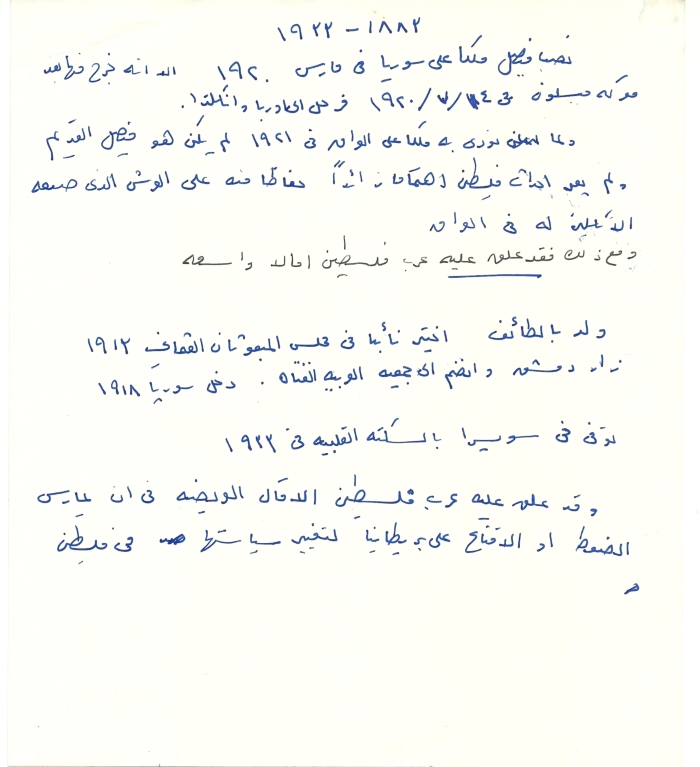 ١٨٨٣ - ١٩٣٣
نصب فيصل ملكا على سوريا فى مارس ١٩٢٠ الا انه خرج منها بعد
معركة ميسلون فى ٢٤/٧/١٩٢٠ فرحل الى اوربا وانكلترا.
ولما نودى به ملكا على العراق فى ١٩٢١ لم يكن هو فيصل القديم
ولم يعر احداث فلسطين اهتماما زائداً حفاظا منه على العرش الذى صنعه
الانكليز له فى العراق
ومع ذلك فقد علق عليه عرب فلسطين امالا واسعه
ولد بالطائف اختير نائبا فى مجلس المبعوثان العثمانى ١٩١٣
زار دمشق وانضم الى جمعيه العربيه الفتاه. دخل سوريا ١٩١٨
توفى فى سويسرا بالسكته القلبيه فى ١٩٣٣
وقد علق عليه عرب فلسطين الامال العريضه فى ان يمارس
الضغط او الاقناع على بريطانيا لتغيير سياستها فى فلسطين